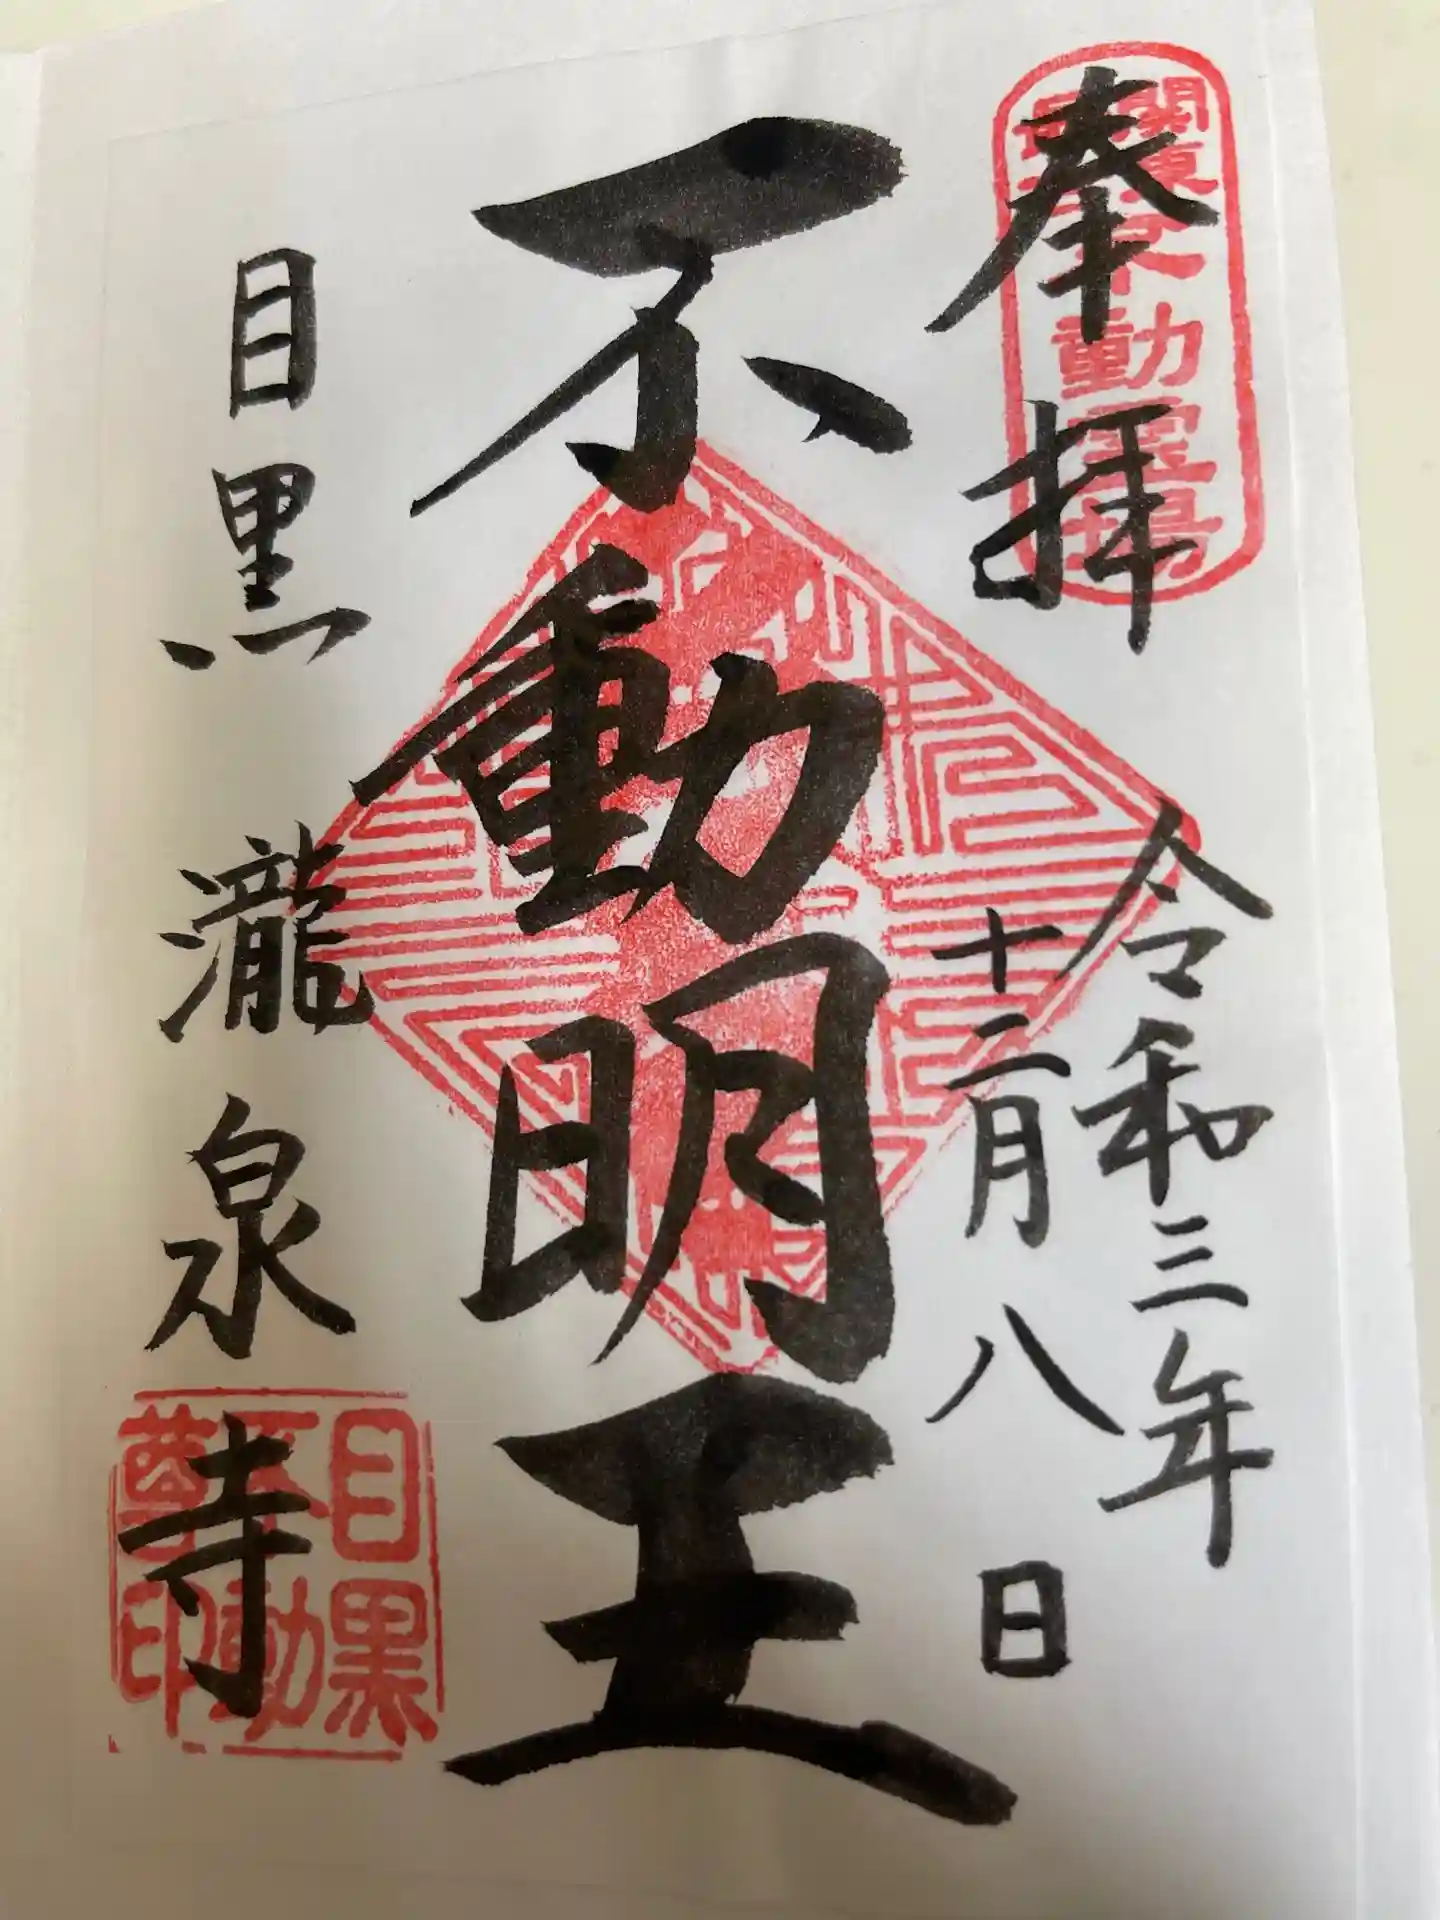 奉拝
令和三年
十二月八日
不動明王
目黒 瀧泉寺
関東
動霊場
目黒
不動
尊印